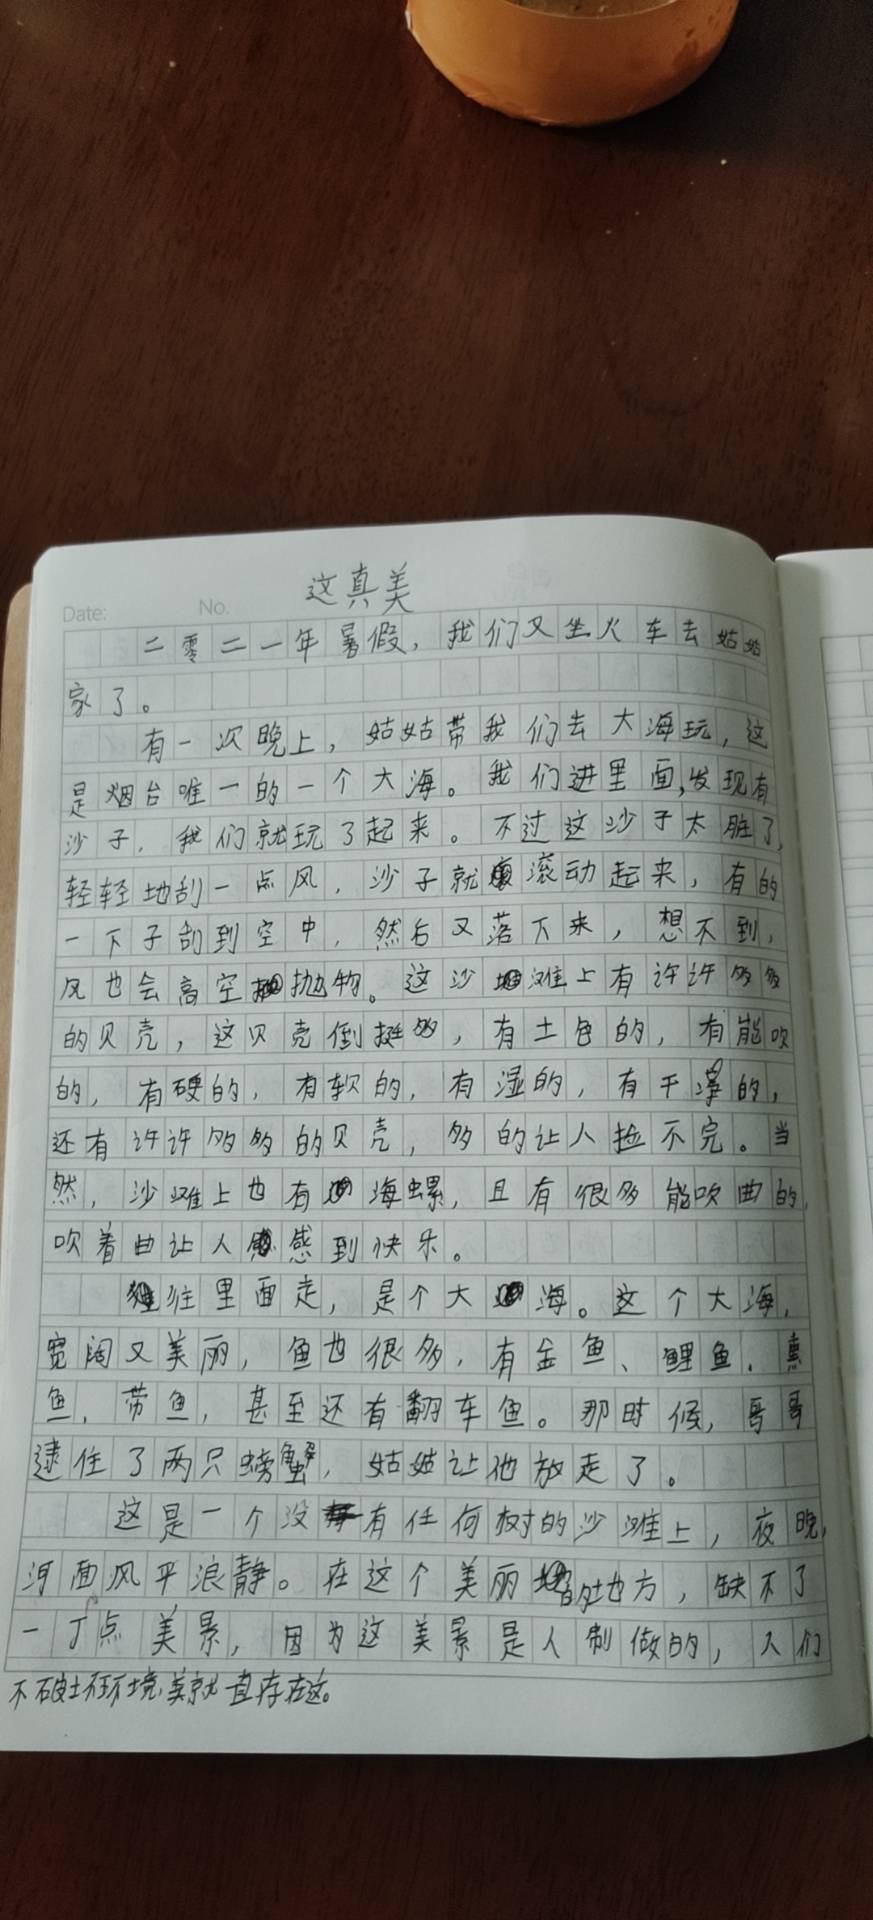 这真美
Date: No.
二零二一年暑假，我们又坐火车去姑姑
家了。
有一次晚上，姑姑带我们去大海玩，这
是烟台唯一的一个大海。我们进里面,发现有
沙子，我们就玩了起来。不过这沙子太脏了，
轻轻地刮一点风，沙子就滚动起来，有的
一下子刮到空中，然后又落下来，想不到，
风也会高空抛物。这沙滩上有许许多多
的贝壳，这贝壳倒挺多，有土色的，有能吹
的，有硬的，有软的，有湿的，有干净的，
还有许许多多的贝壳，多的让人捡不完。当
然，沙滩上也有海螺，且有很多能吹曲的，
吹着曲让人感到快乐。
往里面走，是个大海。这个大海，
宽阔又美丽，鱼也很多，有金鱼、鲤鱼、
鱼，带鱼，甚至还有翻车鱼。那时候，哥哥
逮住了两只螃蟹，姑姑让他放走了。
这是一个没有任何树的沙滩上，夜晚，
河面风平浪静。在这个美丽的地方，缺不了
一丁点美景，因为这美景是人制做的，人们
不破坏环境,美就一直存在这。